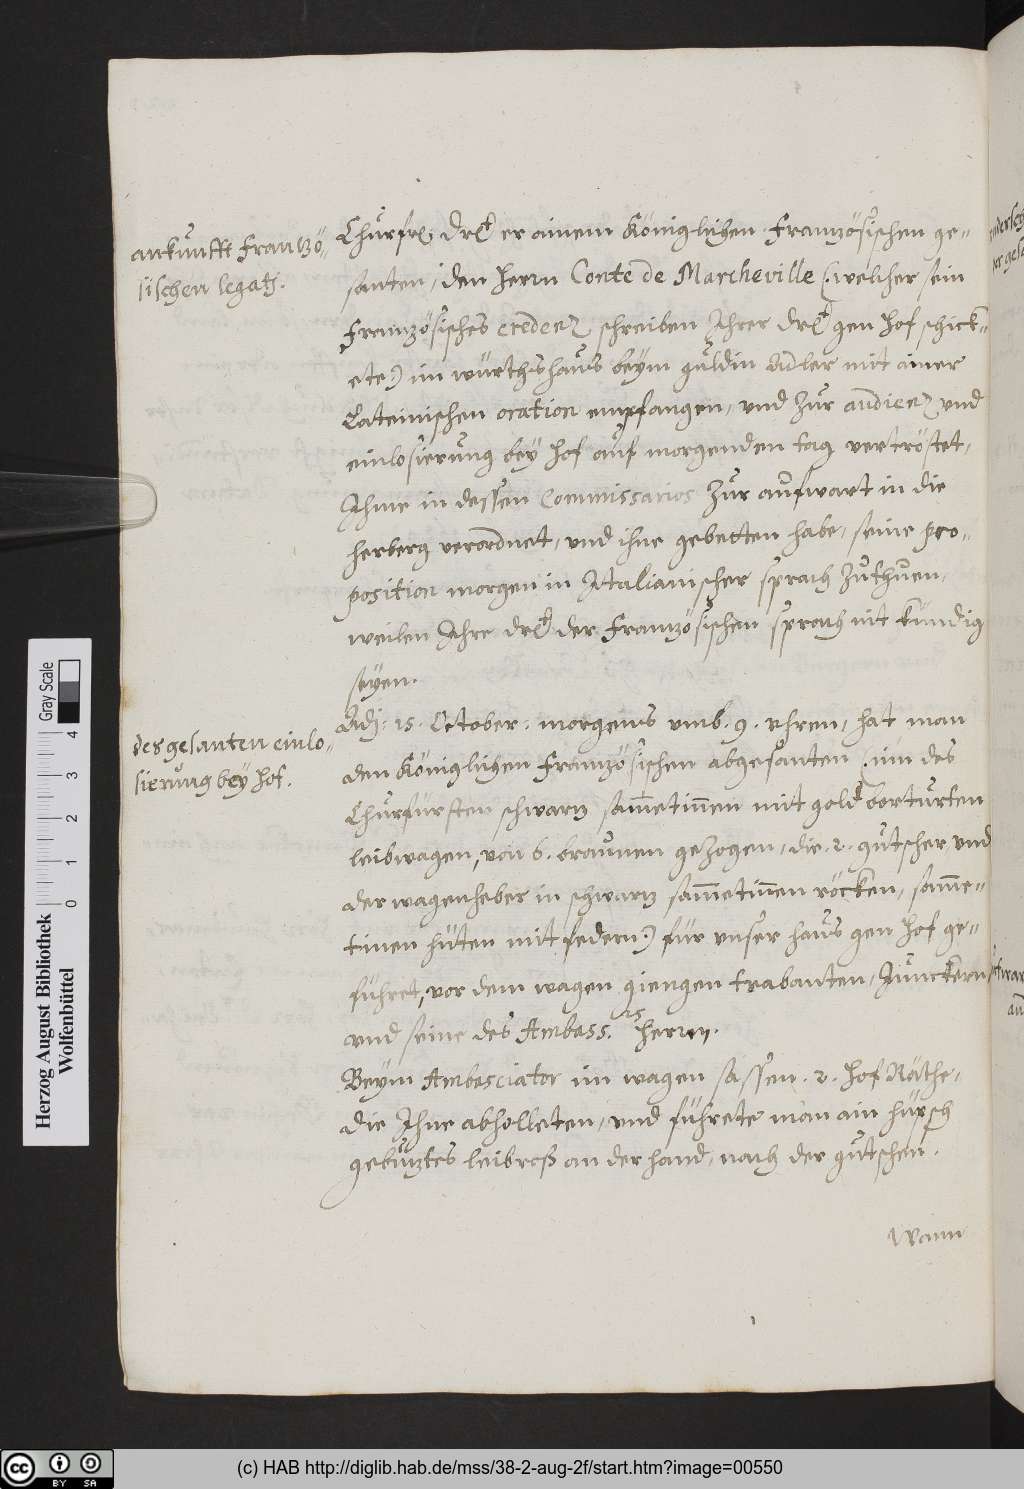 ankunfft Frantzö-
sischen legats.
Churfrl: Drlt er ainem Königlichen Französischen ge-
santen, den Herrn Conte de Marcheville (: welcher sein
Französisches credenz schreiben Ihrer Drlt gen Hof schick-
ete:) im würthshaus beym güldin Adler mit ainer
Lateinischen oration empfangen, und zur audienz und
einlosierung bey Hof auf morgenden tag vertröstet,
Ihme in dessen Commissarios zur aufwart in die
herberg verordnet, und ihne gebetten habe, seine pro-
position morgen in Italianischer sprach zuthuen,
weilen Ihre Drlt der Französischen sprach nit kundig
seyen.
des gesanten einlo-
sierung bey hof.
Adj: 15. October: morgens umb. 9. uhren, hat man
den Königlichen Französischen abgesanten (: im des
Churfürsten schwarz sammetinnen mit gold bortürten
leibwagen, von 6. braunen gezogen, die. 2. gutscher und
der wagenheber in schwarz sammetinnen röcken, samme-
tinen hüten mit federn:) für unser haus gen Hof ge-
führet, vor dem wagen giengen trabanten, Junckern
und seine des Ambass. 15 herren.
Beym Ambasciator im wagen sassen. 2. Hof Räthe,
die Ihne abholleten, und führete man ain hüpsch
gebuztes leibroß an der hand, nach der gutschen.
Wann
Herzog August Bibliothek
Wolfenbüttel
0 1 2 3 4
Gray Scale
(c) HAB http://diglib.hab.de/mss/38-2-aug-2f/start.htm?image=00550
cc BY SA